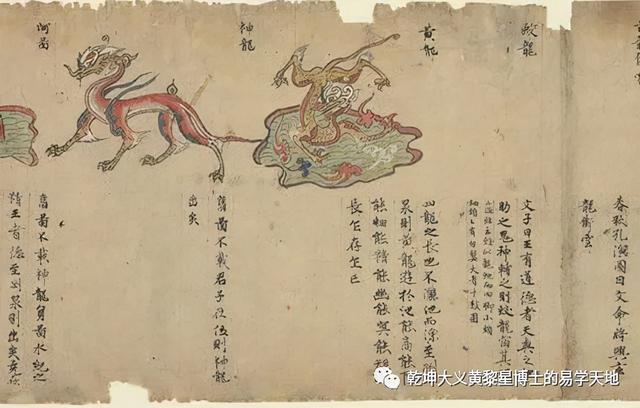 春秋孔演圖曰文命將興
龍銜雲
蛟龍
文子曰王有道德者天與之
助之鬼神輔之則蛟龍宿其
黄龍
四龍之長也不漉池而漁至
泉則黄龍遊於池能高能
能細能精能幽能冥能短
長乍存乍亡
神龍
舊啚不載君子在位則神龍
出矣
河啚
舊啚不載神龍負啚水紀之
精王者德至泉則出矣
乾坤大义黄黎星博士的易学天地